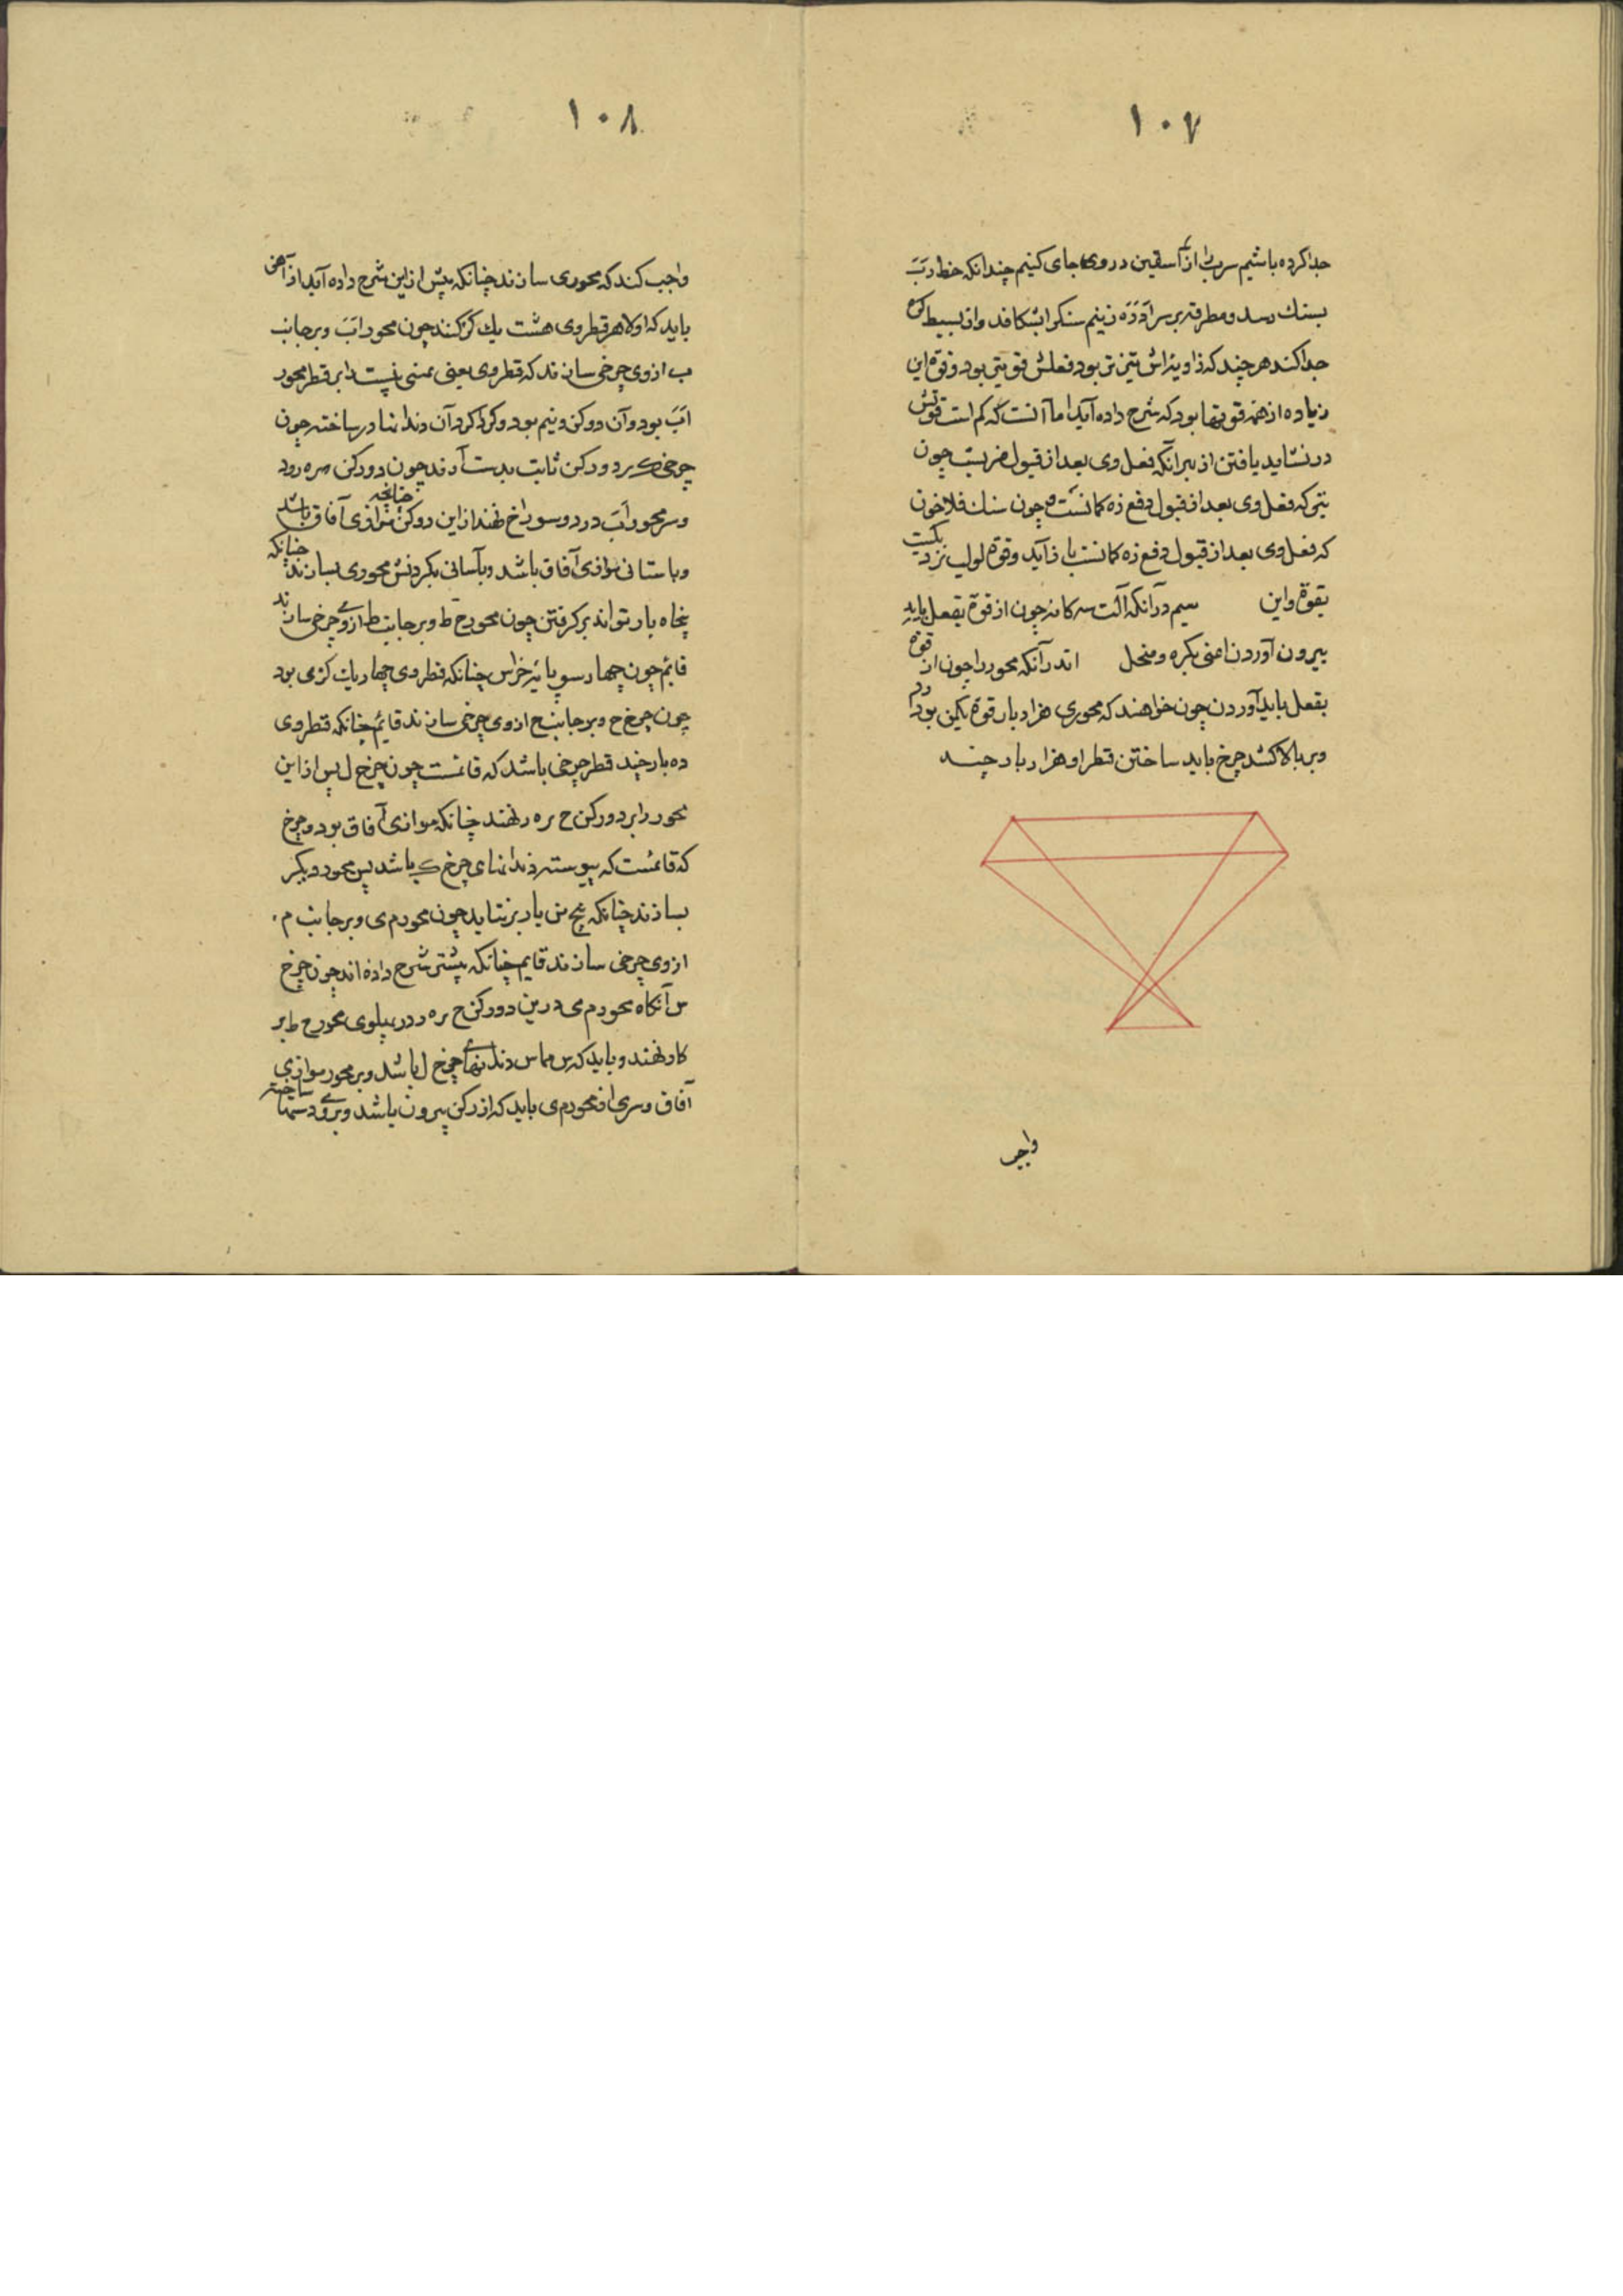 ۱۰۷
جدا کرده باشیم سر ب را از آسقین در وی جای کنیم چندانکه خط د ب
بسنک رسد و مطرقه بر سر زنیم سنک را بشکافد و از بسیط کره
جدا کند هر چند که زاویه اش تیزتر بود فعلش قوی تر بود و قوة این
زیاده از همه قوتها بود که شرح داده آید اما آنست که کم است قوتش
در نشاید یافتن از بهر آنکه فعل وی بعد از قبول ضربست چون
تیر که فعل وی بعد از قبول دفع زه کمانست و چون سنك فلاخون
که فعل وی بعد از قبول دفع زه کمانست باز آید و قوة لولب نزدیکست
بقوة و این سیم در آنکه آلت سه کانه چون از قوة بفعل باید
بیرون آوردن اعنی بکره و منحل اندر آنکه محور را چون از قوة
بفعل باید آوردن چون خواهند که محوری هزار بار قوة یکمن بود
و بر بالا کشد چرخ باید ساختن قطر او هزار بار چند
واجب
۱۰۸
واجب کند که محوری سازند چنانکه پیش از این شرح داده آید از آهن
باید که اولا هر قطر وی هشت یك کز کنند چون محور اب و بر جانب
ب از وی چرخی سازند که قطر وی یعنی بمنی بیست را بر قطر محور
اب بود و آن دو کز و نیم بود و کرد کرد آن دندانها در ساخته چون
چرخ ک بر دو رکن ثابت بدست آرند چون دو رکن مره رود
و سر محور اب در دو سوراخ نهند از این دو رکن چنانچه موازی آفاق باشد
و باستانی موازی آفاق باشد و بآسانی بکردنش محوری بسازند چنانکه
پنجاه بار تواند بر کرفتن چون محور ح ط و بر جانب ط از وی چرخی سازند
قائم چون چهار سو پایه خراس چنانکه قطر وی چهار یك کزی بود
چون چرخ ح و بر جانب ح از وی چرخی سازند قائم چنانکه قطر وی
ده بار چند قطر چرخی باشد که قائمست چون چرخ ل پس از این
محور را بر دو رکن ح بره د نهند چنانکه موازی آفاق بود و چرخ
که قائمست که پیوسته دندانهای چرخ ک باشد پس محور دیکر
بسازند چنانکه پنج من بار بر نتابد چون محور م ی و بر جانب م
از وی چرخی سازند قایم چنانکه پیشتر شرح داده اند چون چرخ
س آنکاه محور م ی درین دو رکن ح بره د در پهلوی محور ح ط بر
کار نهند و باید که س مماس دندانهای چرخ ل باشد و بر محور موازی
آفاق و سری از محور م ی باید که از رکن بیرون باشد و بر وی دستها ساخته